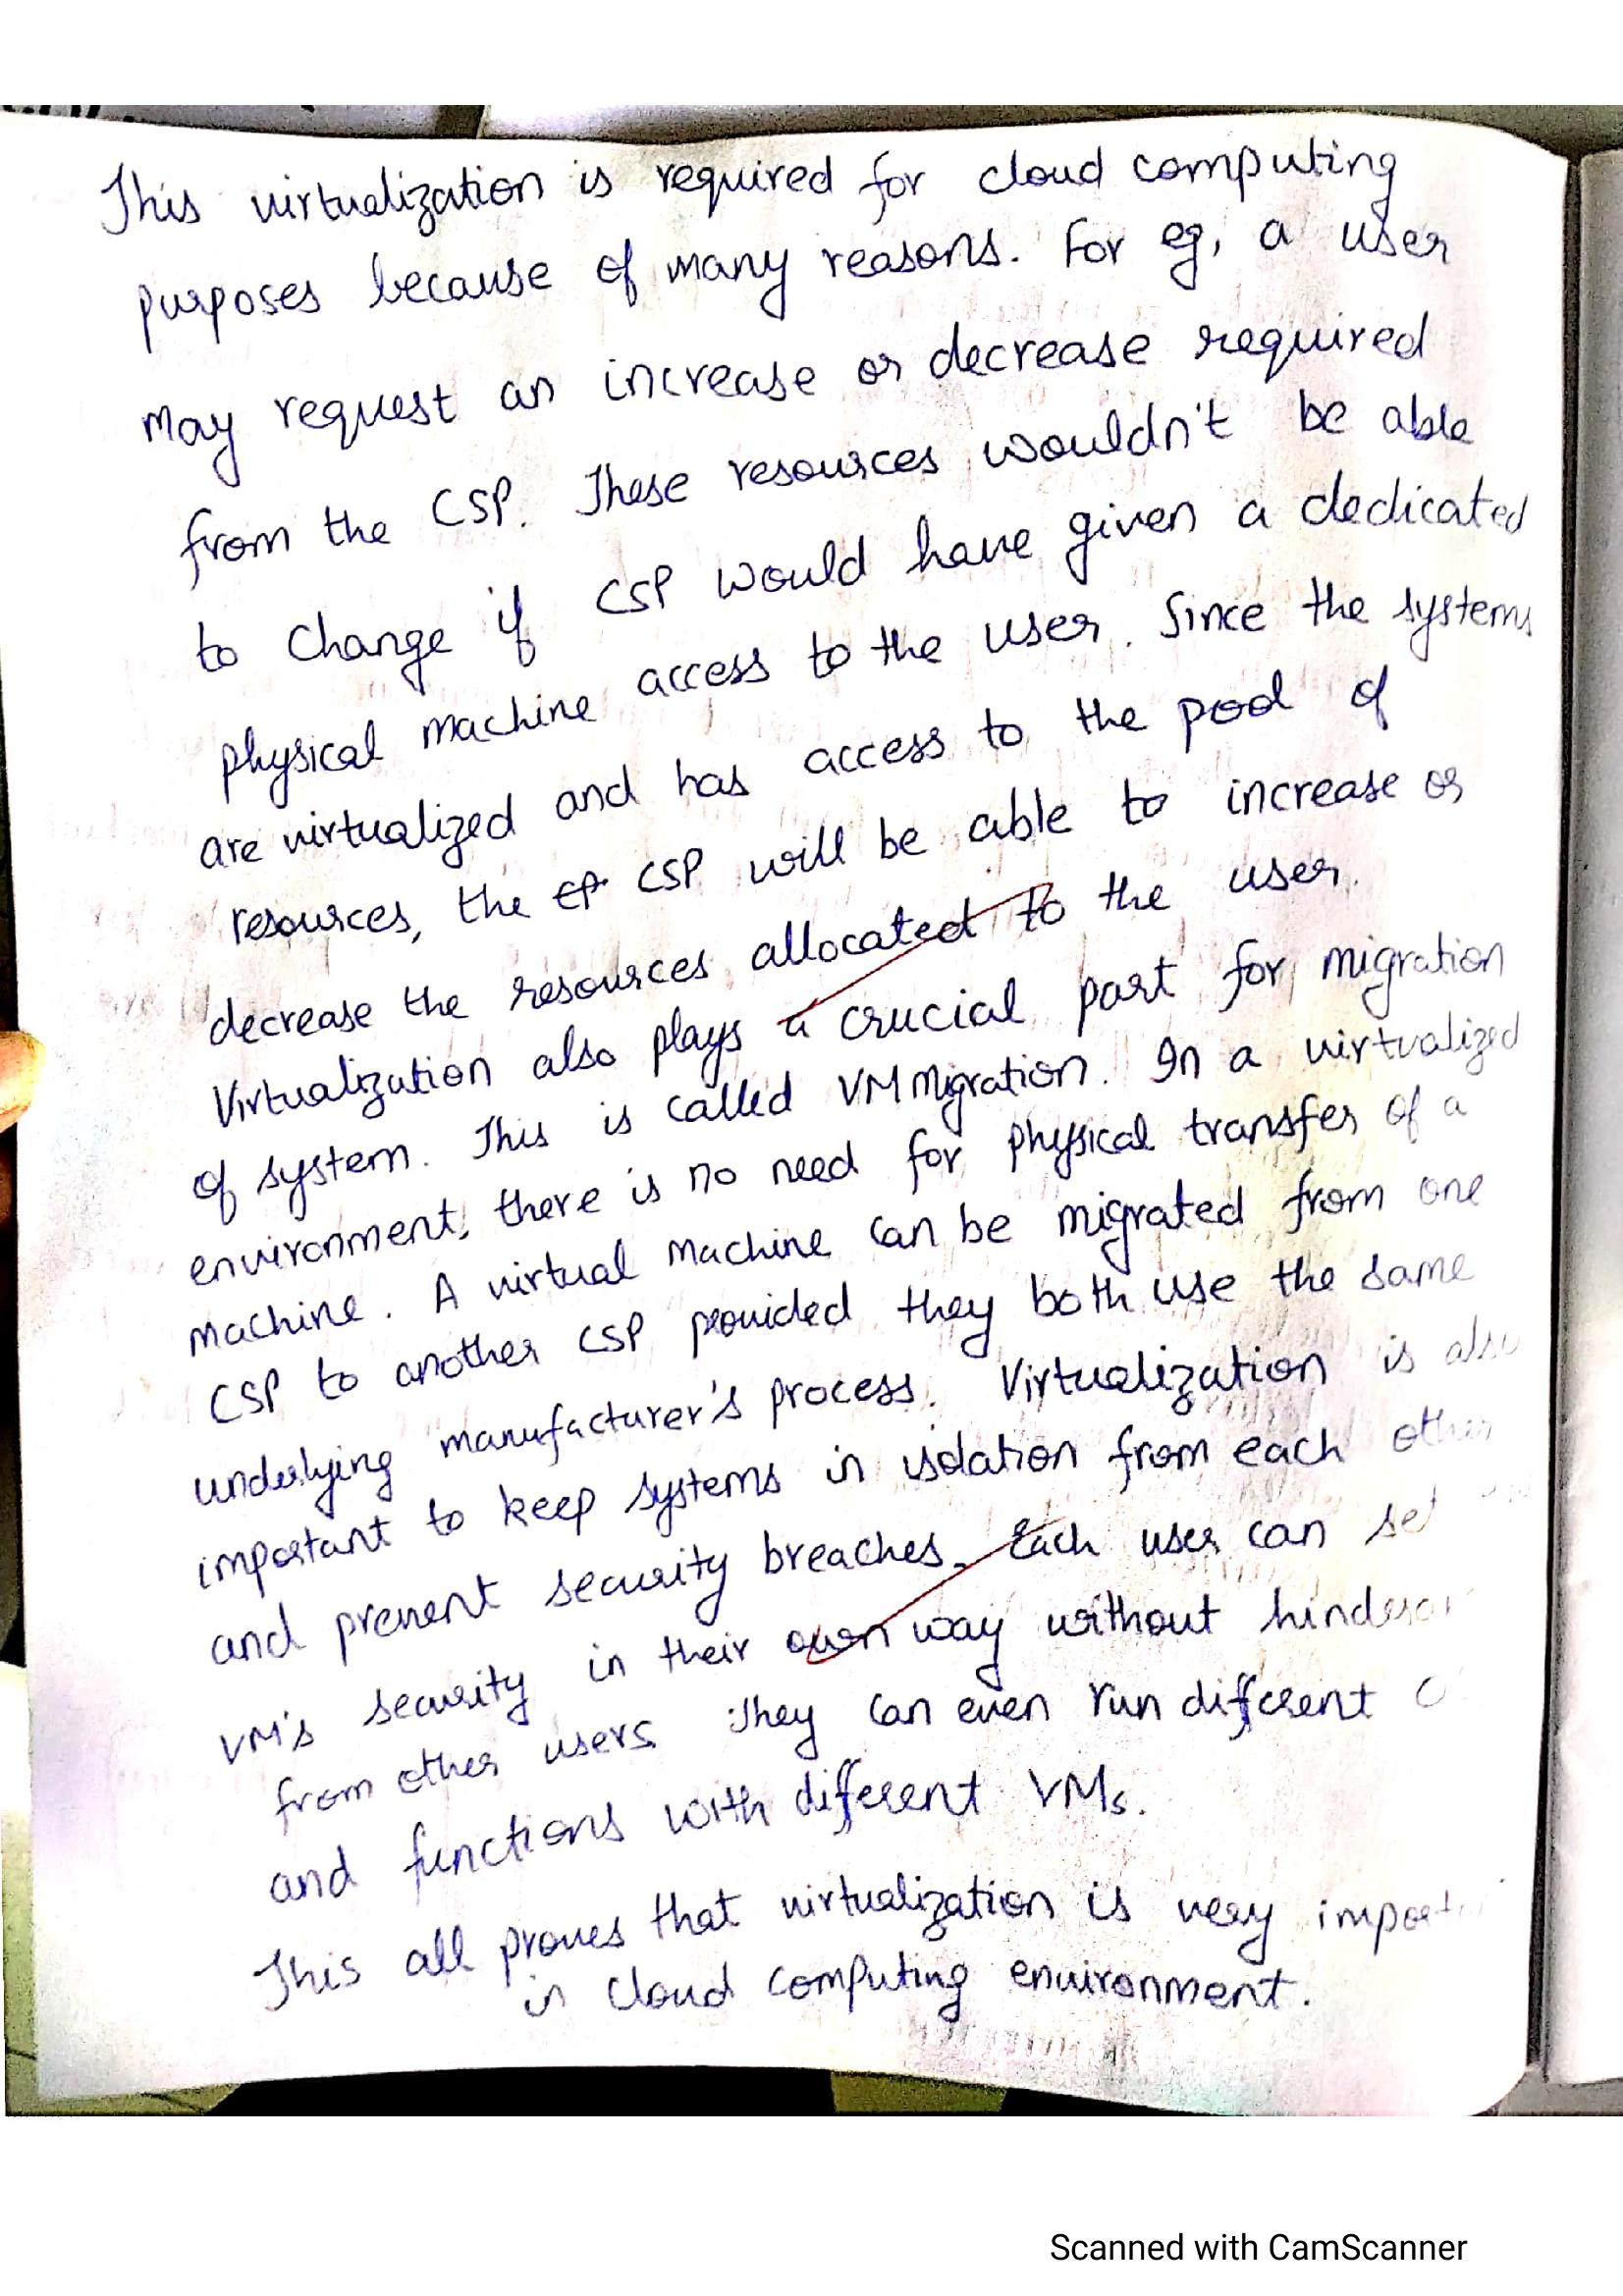 This virtualization is required for cloud computing
purposes because of many reasons. For eg, a user
may request an increase or decrease required
from the CSP. These resources wouldn't be able
to change if CSP would have given a dedicated
physical machine access to the user. Since the systems
are virtualized and has access to the pool of
resources, the CSP will be able to increase or
decrease the resources allocated to the user.
Virtualization also plays a crucial part for migration
of system. This is called VM migration. In a virtualized
environment, there is no need for physical transfer of a
machine. A virtual machine can be migrated from one
CSP to another CSP provided they both use the same
underlying manufacturer's process. Virtualization is also
important to keep systems in isolation from each other
and prevent security breaches. Each user can set
VM's security in their own way without
from other users. They can even run different
and functions with different VMs.
This all proves that virtualization is very
in cloud computing environment.
Scanned with CamScanner